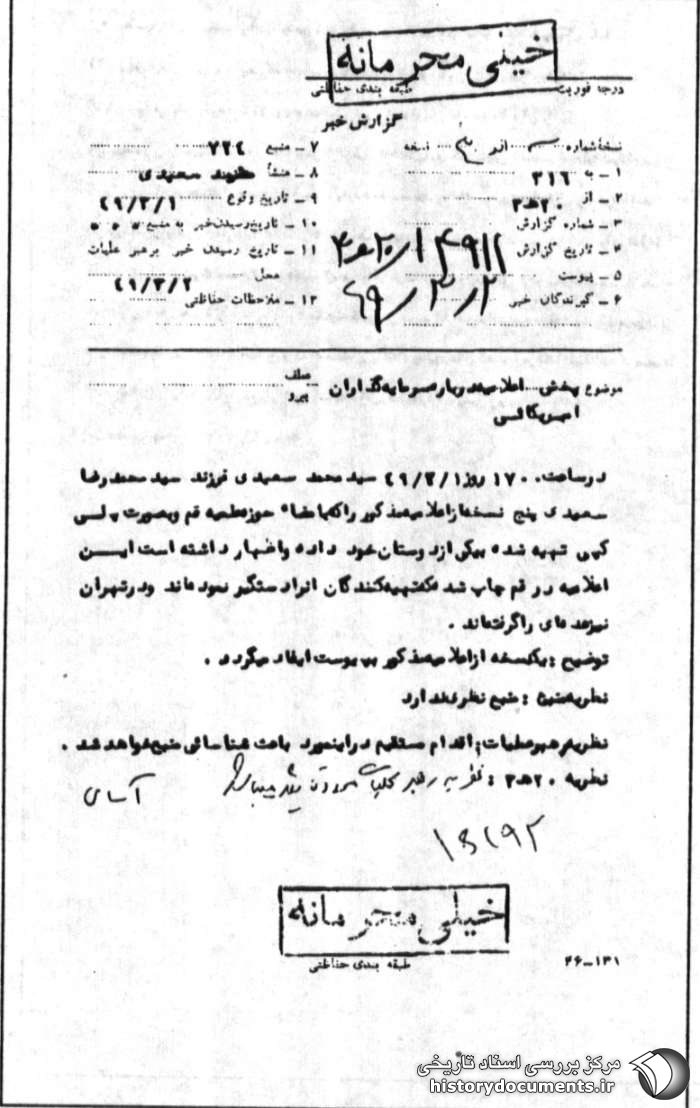 خیلی محرمانه
درجه فوریت طبقه بندی حفاظتی
گزارش خبر
نسخه شماره از نسخه ۷ - منبع ۷۲۴
۱ - به ۳۱۶ ۸ - منشأ سعیدی
۲ - از ۲۰ ه ۳ ۹ - تاریخ وقوع ۴۹/۳/۱
۳ - شماره گزارش ۱۰ - تاریخ رسیدن خبر به منبع
۴ - تاریخ گزارش ۱۱ - تاریخ رسیدن خبر برهبر عملیات
۵ - پیوست محل ۴۹/۳/۲
۶ - گیرندگان خبر ۱۲ - ملاحظات حفاظتی
۴۹/۳/۲
موضوع پخش اعلامیه درباره سرمایه گذاران عطف
امریکائی پیرو
درساعت ۱۷۰۰ روز ۴۹/۳/۱ سید محمد سعیدی فرزند سید محمد رضا
سعیدی پنج نسخه از اعلامیه مذکور را که با مضاء حوزه علمیه قم و بصورت پلی
کپی تهیه شده بیکی از دوستان خود داده و اضهار داشته است ایــن
اعلامیه در قم چاپ شده که تهیه کنندگان انرا دستگیر نموده اند و در تهران
نیز عده ای را گرفته اند .
توضیح : یکنسخه از اعلامیه مذکور به پیوست ایفاد میگردد .
نظریه منبع : منبع نظری ندارد
نظریه رهبر عملیات : اقدام مستقیم در اینمورد باعث شناسائی منبع خواهد شد .
نظریه ۲۰ ه ۳ : نظریه رهبر عملیات مورد تائید میباشد
خیلی محرمانه
طبقه بندی حفاظتی
۲۶-۱۳۱
مرکز بررسی اسناد تاریخی
historydocuments.ir